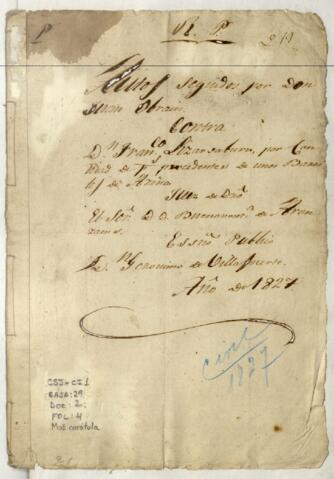 R. P.
Autos seguidos por Don
Contra
D.n Fran.co Lizarzaburu, por Can
tidad de p.s procedentes de unos
de Arina
Juez de Dro
El Señ. D. D. Buenavent.a de Aran
zaens.
Essno Publico
D.n Geronimo de Villafuerte.
Año de 1827
Civil
1827
CSJ-CI1
CAJA: 29
Doc: 2
FOL: 4
Mas caratula